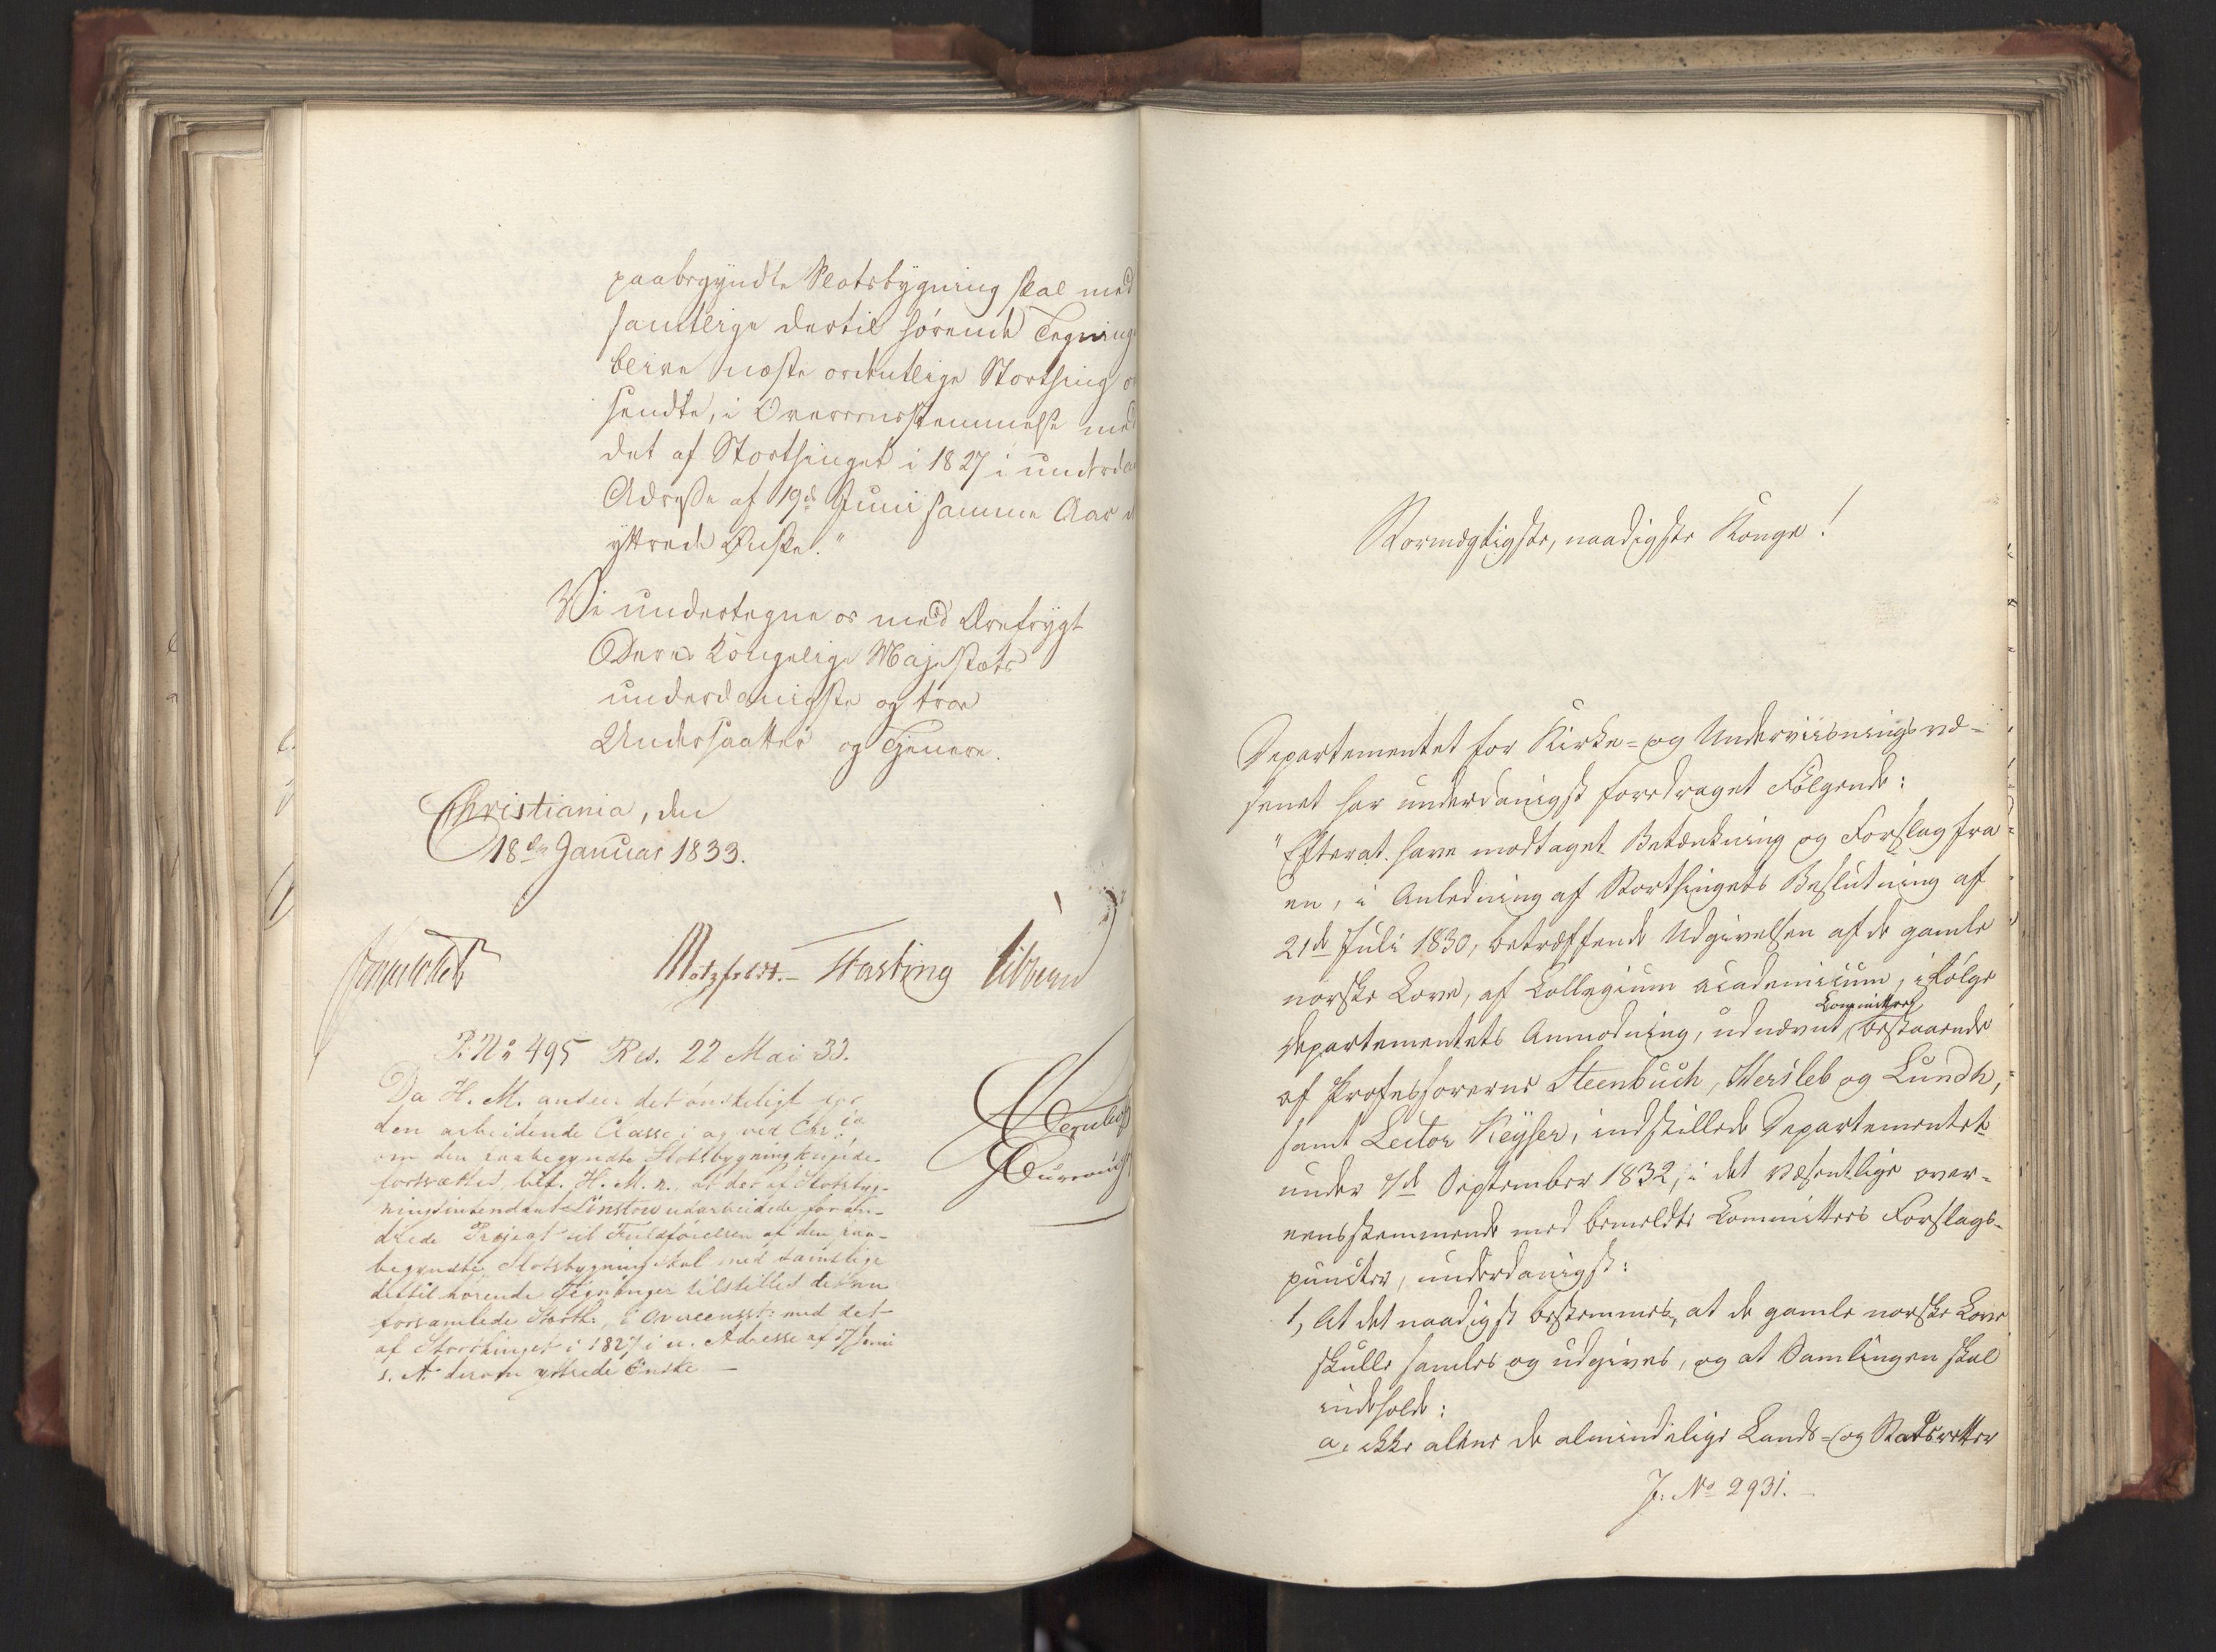 paabegyndte Slotsbygning skal med
samtlige dertil hørende Tegning
blive næste ordentlige Storthing o
sendte, i Overeensstemmelse med
det af Storthinget i 1827 i underda
Adresse af 19de Juni samme Aar d
yttrede Ønske."
Vi undertegne os med Ærefrygt
Deres Kongelige Majestæts
underdanigste og troe
Undersaatter og Tjenere.
Christiania, den
18de Januar 1833.
Motzfeldt. Fasting Vibe
P. No 495 Res. 22 Mai 33.
Da H. M. anseer det ønskeligt for
den arbeidende Classe i og ved Chr:ia
om den paabegyndte Slotsbygning kunde
fortsættes, bif. H. M. n. at det af Slotsbyg-
ningsintendant Linstow udarbeidede foran-
drede Project til Fuldførelsen af den paa-
begyndte Slotsbygning skal med samtlige
dertil hørende Tegninger tilstilles det nu
forsamlede Storth:, i Overeensst: med det
af Storthinget i 1827 i u. Adresse af 17 Juni
s. A. derom yttrede Ønske. —
Stormægtigste, naadigste Konge!
Departementet for Kirke- og Underviisningsvæ-
senet har underdanigst foredraget Følgende:
"Efterat have modtaget Betænkning og Forslag fra
en, i Anledning af Storthingets Beslutning af
21de Juli 1830, betræffende Udgivelsen af de gamle
norske Love, af Collegium academicum, ifølge
Committee
Departementets Anmodning, udnævnt bestaaende
af Professorerne Steenbuch, Hersleb og Lundh,
samt Lector Keyser, indstillede Departementet
under 7de September 1832, i det Væsentlige over-
eensstemmende med bemeldte Committees Forslags-
puncter, underdanigst:
1, At det naadigst bestemmes, at de gamle norske Love
skulle samles og udgives, og at Samlingen skal
indeholde:
a, ikke alene de almindelige Lands- og Stadsretter
J: No 2931.